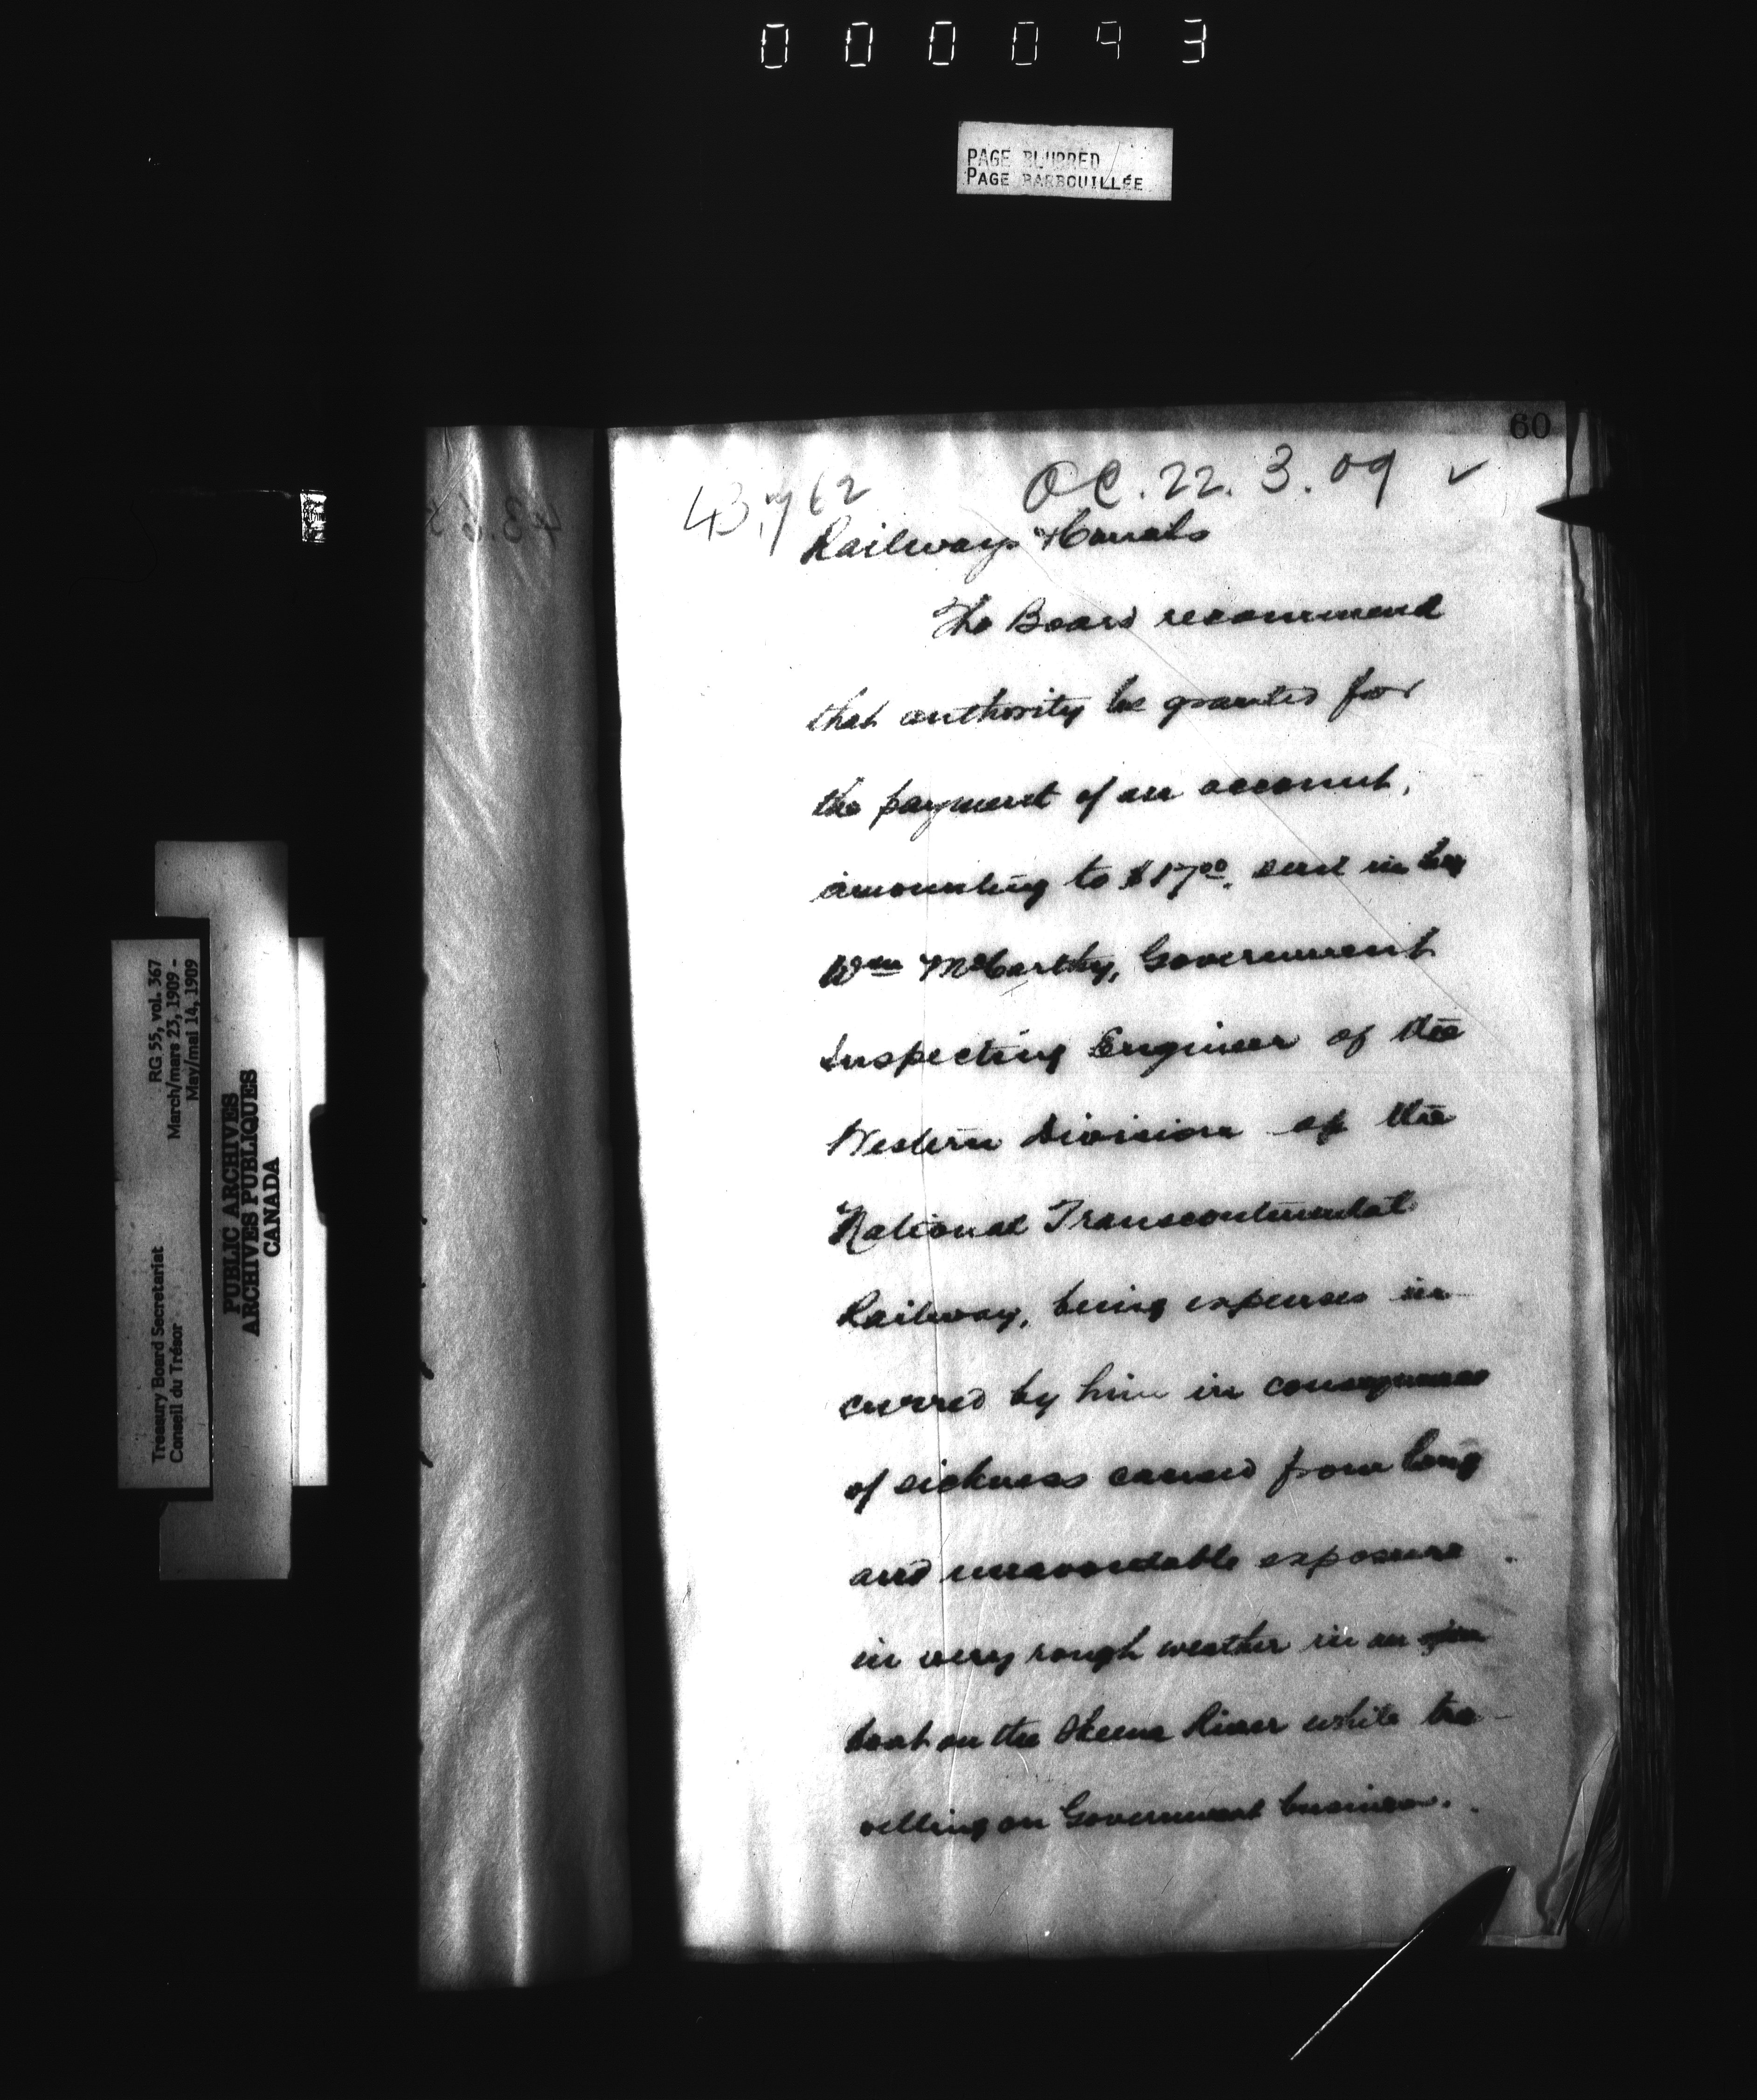 000093
PAGE BLURRED
PAGE BARBOUILLÉE
60
43,762
OC. 22. 3. 09 ✓
Railways & Canals
The Board recommend
that authority be granted for
the payment of an account,
amounting to $17.00. sent in by
Wm McCarthy, Government
Inspecting Engineer of the
Western Division of the
National Transcontinental
Railway, being expenses in
curred by him in consequence
of sickness caused from long
and unavoidable exposure
in very rough weather in an open
boat on the Skeena River while tra-
velling on Government business.
Treasury Board Secretariat
Conseil du Trésor
RG 55, vol. 367
March/mars 23, 1909 -
May/mai 14, 1909
PUBLIC ARCHIVES
ARCHIVES PUBLIQUES
CANADA